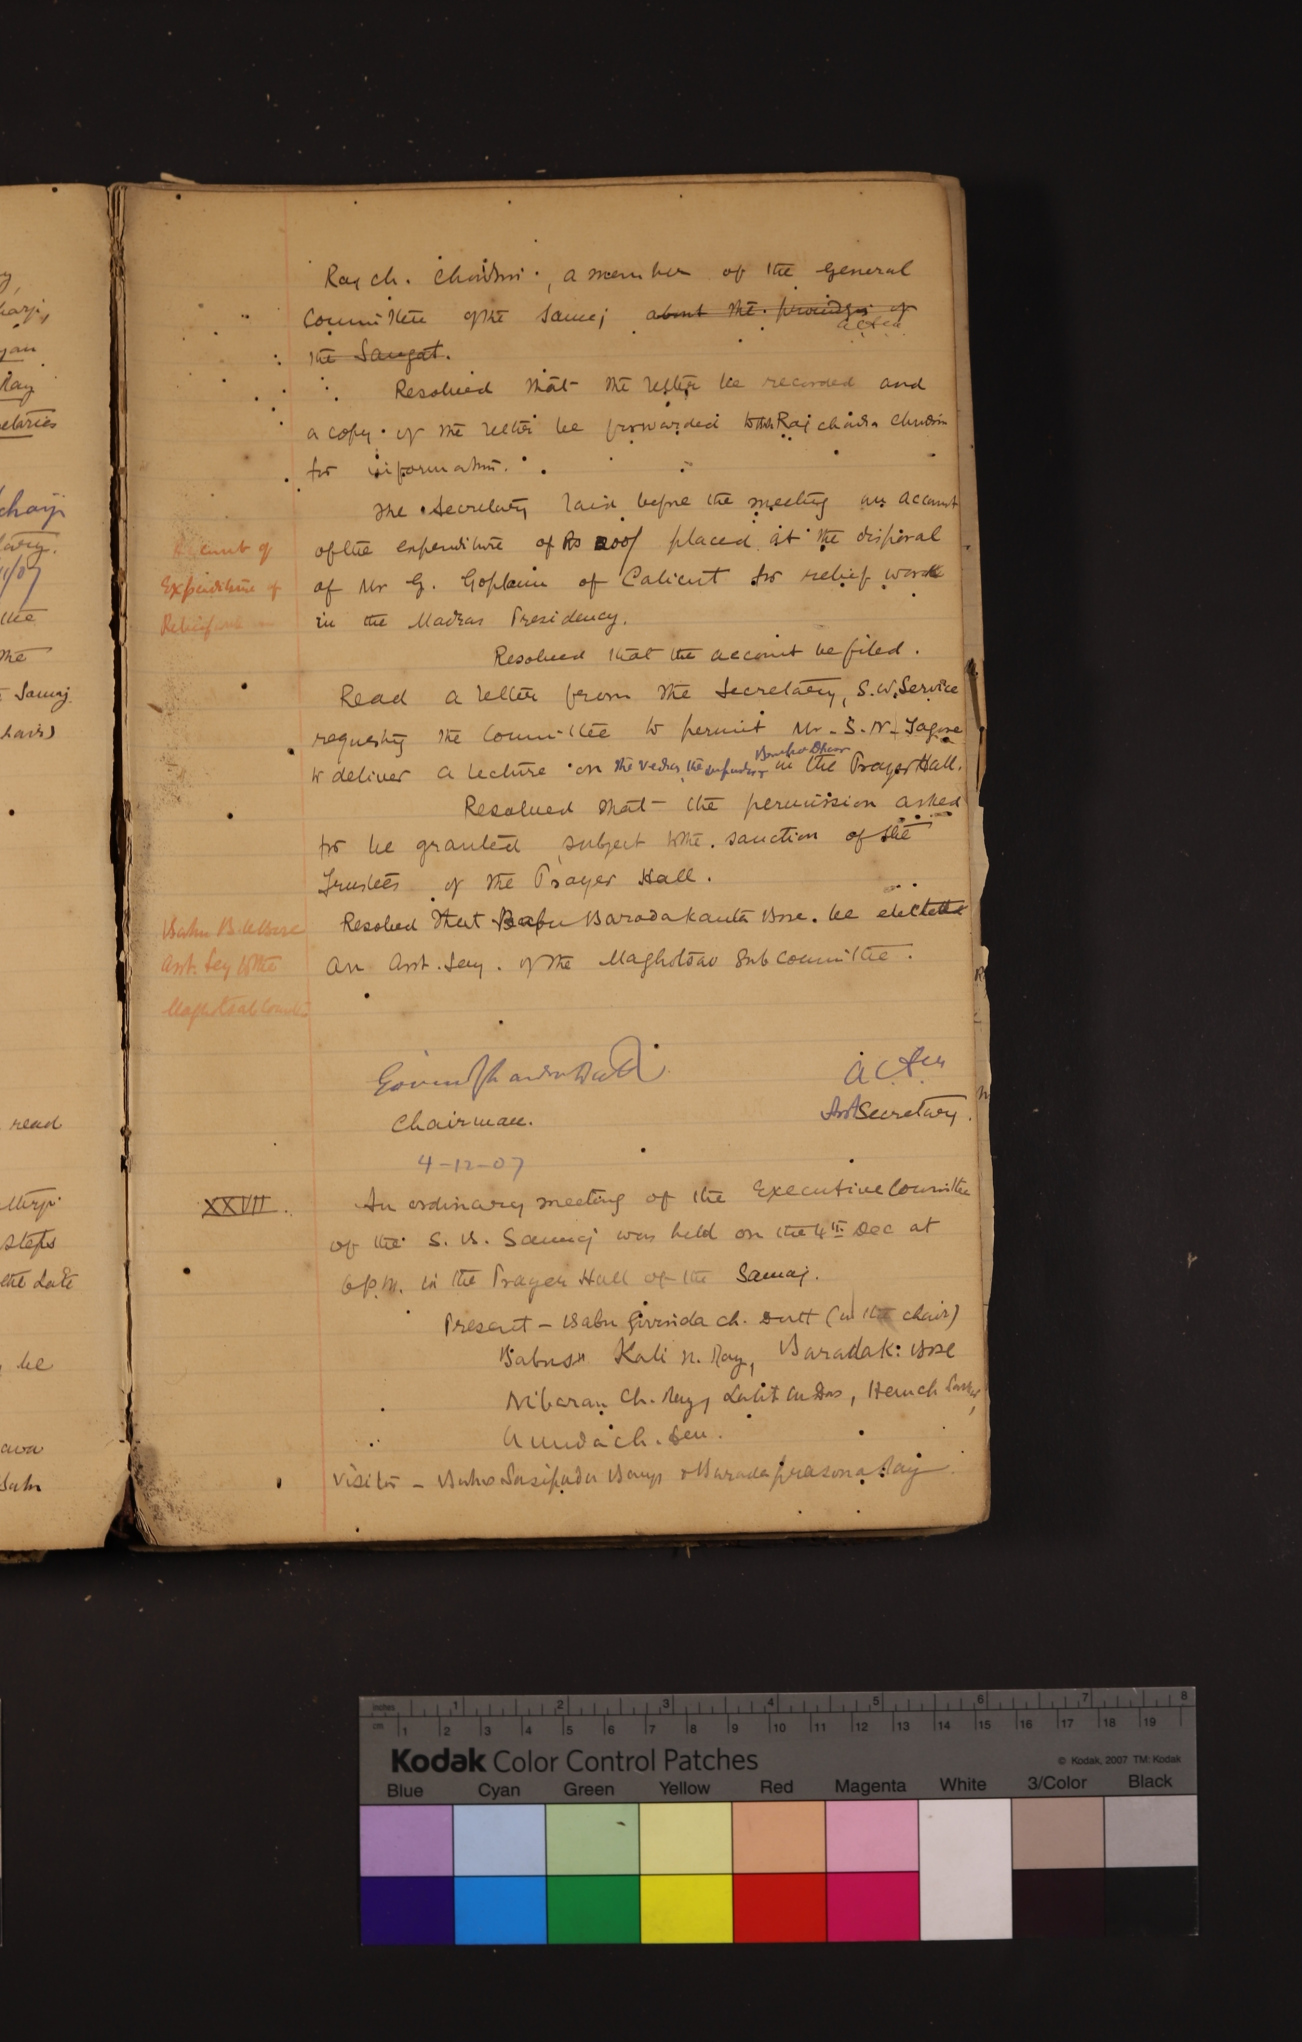 Raj ch. Chaudhuri, a member of the General
Committee of the Samaj about the proceedings of
A C Sen
the Sangat.
Resolved that the letter be recorded and
a copy of the letter be forwarded to Mr Raj chandra Chudhuri
for information.
The Secretary laid before the meeting an account
of the expenditure of Rs 200/ placed at the disposal
Account of
Expenditure of
Relief
of Mr G. of Calicut for relief work
in the Madras Presidency.
Resolved that the account be filed.
Read a letter from the Secretary, S.W. Service
requesting the Committee to permit Mr. S. N. Tagore
to deliver a lecture on the Vedas, the in the Prayer Hall.
Resolved that the permission asked
for be granted subject to the sanction of the
Trustees of the Prayer Hall.
Babu B. K Bose
Asst. Secy to the
Maghotsab Committee
Resolved that Babu Baradakanta Bose. be elected
an Asst. Secy. of the Maghotsav Sub Committee.
Govinda Chandra Dutt
Chairman.
4-12-07
A C Sen
Asst Secretary.
XXVII.
An ordinary meeting of the Executive Committee
of the S. B. Samaj was held on the 4th Dec at
6 P.M. in the Prayer Hall of the Samaj.
Present – Babu Govinda ch. Dutt (in the chair)
Babus Kali N. Ray, Barada K. Bose
Nibaran Ch. Ray, Lalit Das, Hem ch Sarkar,
Annada ch. Sen.
Visitor – Babus Sasipada Banerji & Barada prasona Ray
chair
/07
the
Samaj
chair)
read
steps
the date
be
inches
1 2 3 4 5 6 7 8
cm
1 2 3 4 5 6 7 8 9 10 11 12 13 14 15 16 17 18 19
Kodak Color Control Patches
© Kodak, 2007 TM: Kodak
Blue Cyan Green Yellow Red Magenta White 3/Color Black